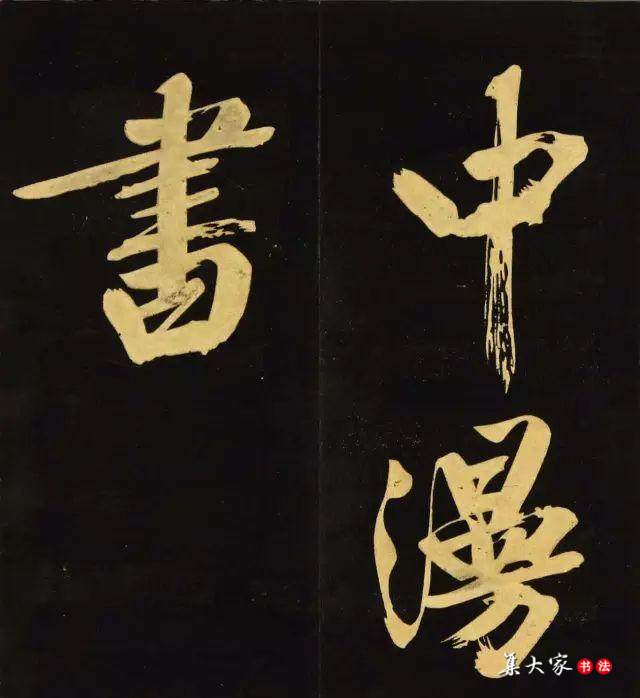 中漫
書
集大家 书法